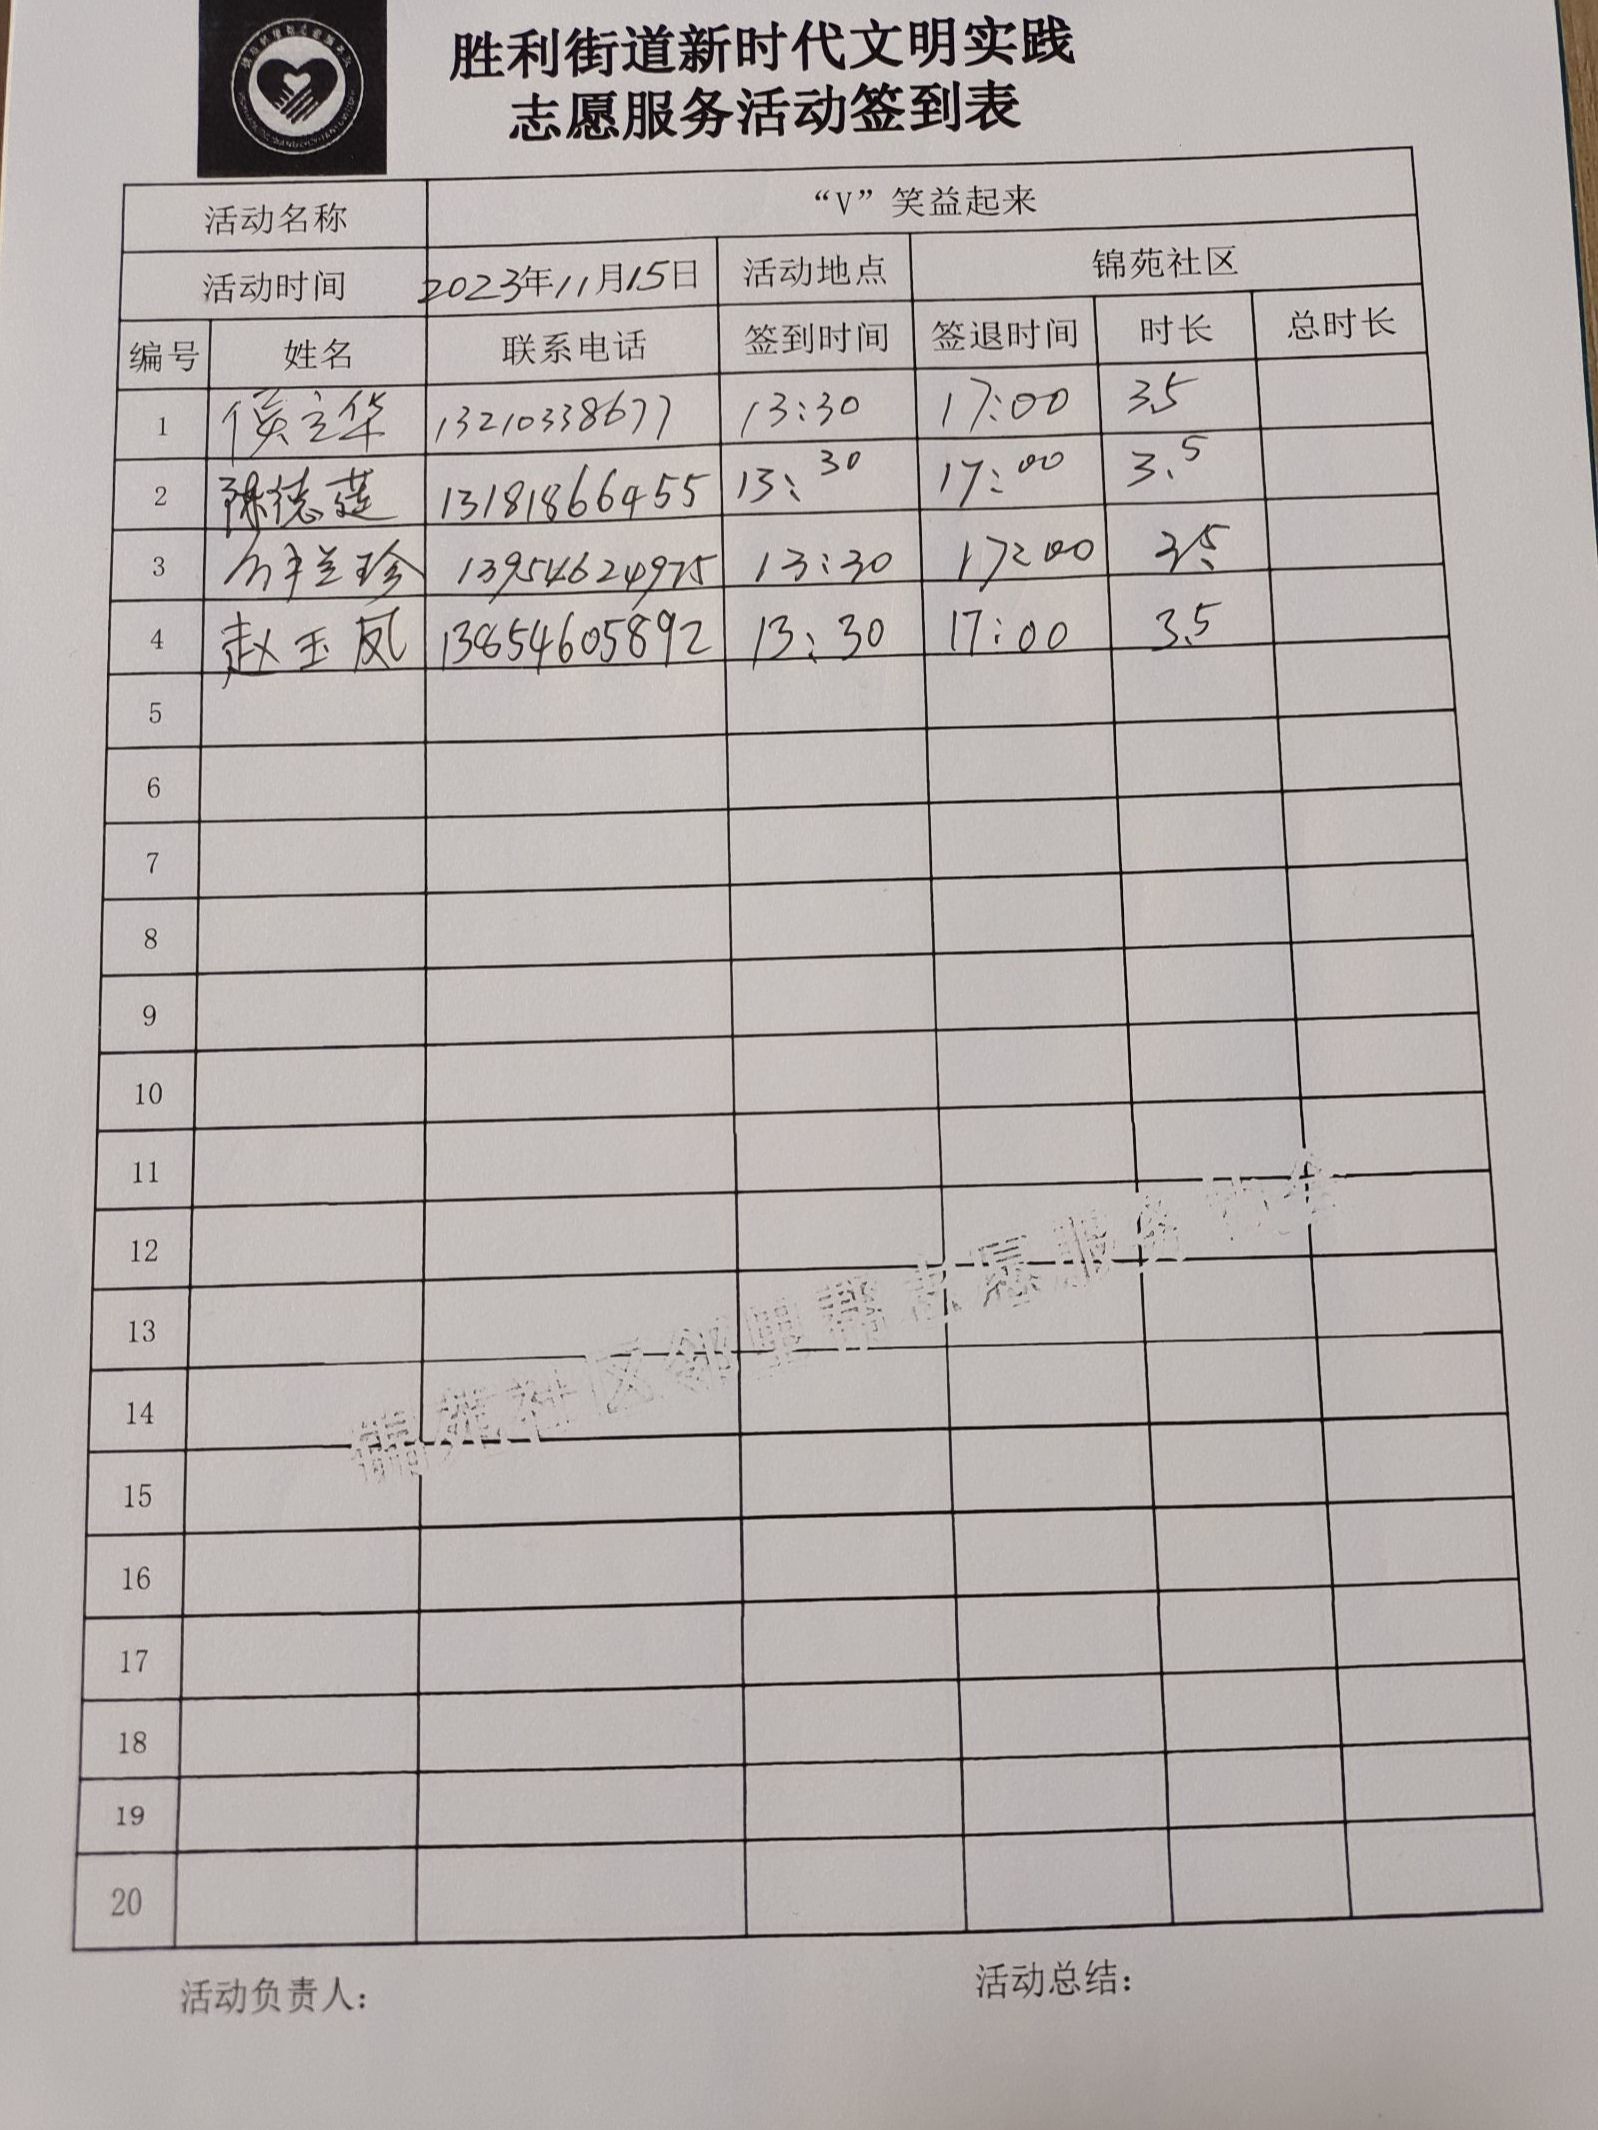 胜利街道新时代文明实践
志愿服务活动签到表
活动名称 “V”笑益起来
活动时间 2023年11月15日 活动地点 锦苑社区
编号 姓名 联系电话 签到时间 签退时间 时长 总时长
1 侯立华 13210338677 13:30 17:00 3.5
2 陈德莲 13181866455 13:30 17:00 3.5
3 兰珍 13954624975 13:30 17:00 3.5
4 赵玉凤 13854605892 13:30 17:00 3.5
5
6
7
8
9
10
11
12
13
14
15
16
17
18
19
20
锦苑社区邻里帮志愿服务协会
活动负责人： 活动总结：